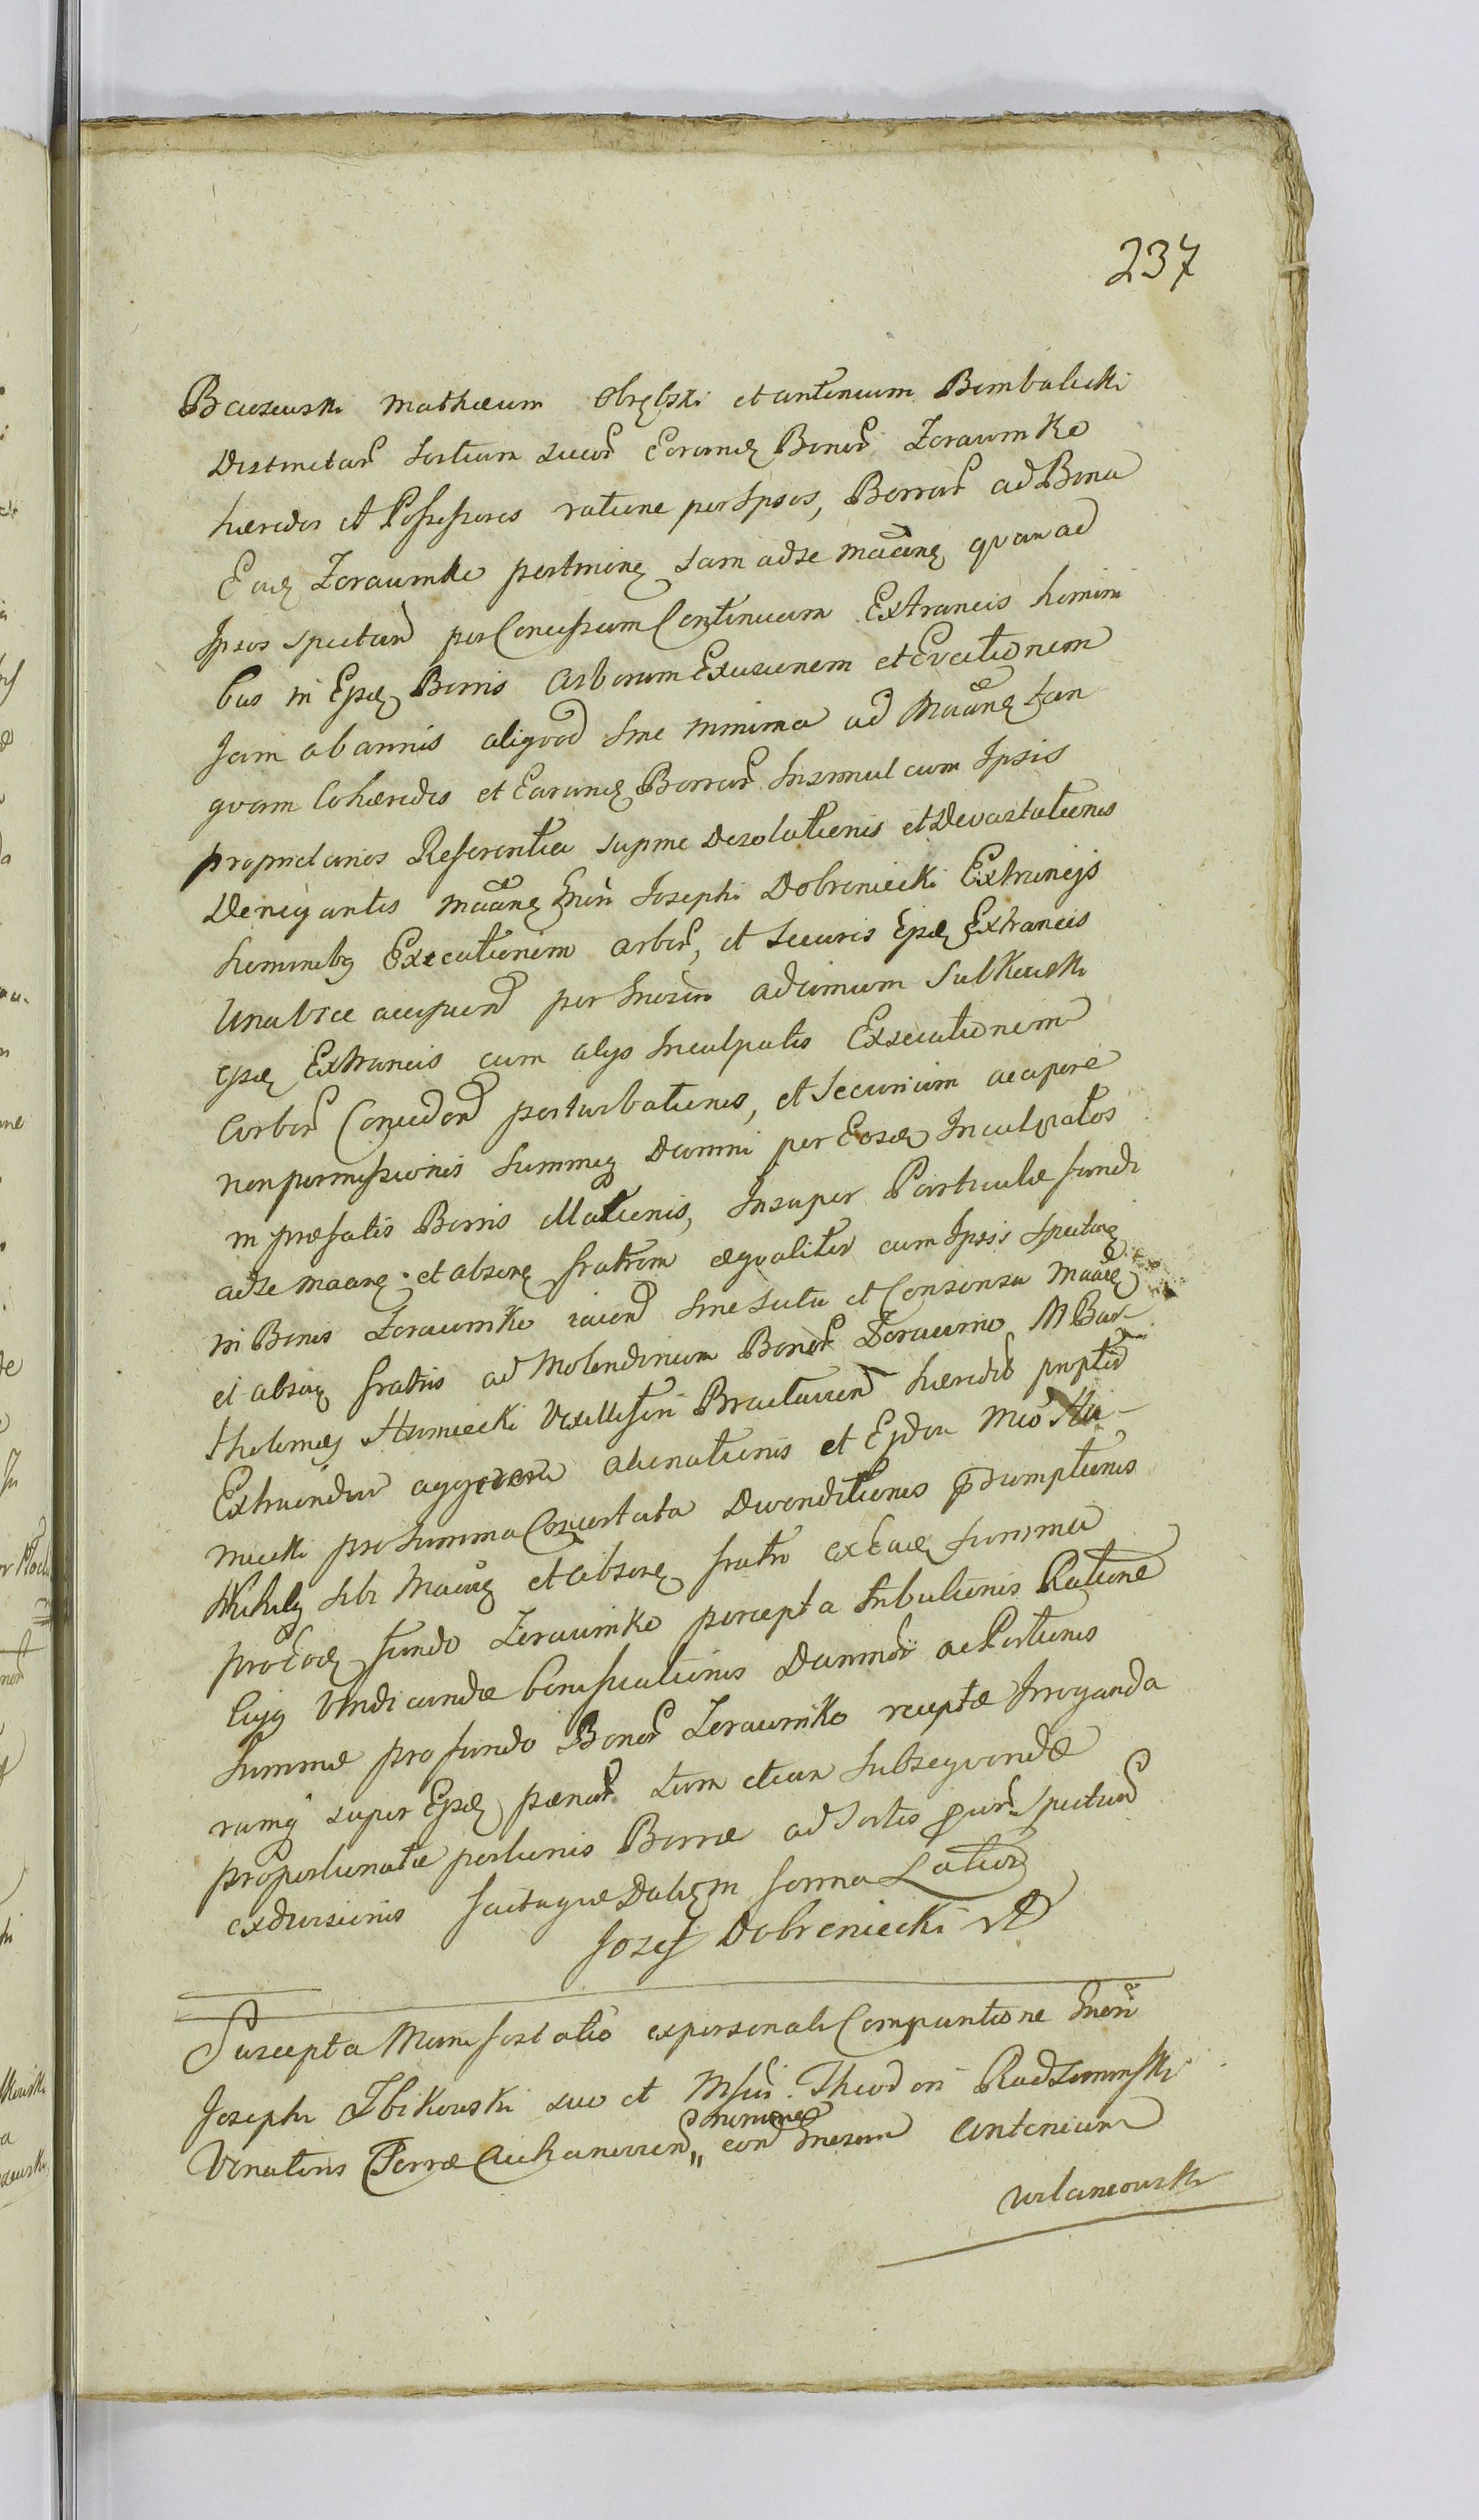 237
Baczewski Mathæum Obrębski et Antonium Bembalicki
Distinctar Sortium suar Eorundq Bonor Zeraumko
hæredes et Possessores ratione per Ipsos, Borrar ad Bona
Eadq Zeraumko pertinenq tam ad se Maanq quam ad
Ipsos spectand per Concessam Continuam Extraneis homini
bus in Ipsdq Borris Arborum Excisionem et Evectionem
Jam ab annis aliquod sine minima ad Maanq tan
quam Cohæredes et Earundq Borrar Insimul cum Ipsis
proprietarios Referentia supme Desolationis et Devastationis
Denegantis Maanq Gnri Josephi Dobreniecki Extraneys
hominibq Execationem arbor, et Securis Ipsdq Extraneis
Unabsce accipiend per Gnosum Adamum Sulkowski
Ipsdq Extraneis cum alys Inculpatis Exsecationem
Arbor Concedend perturbationis, et Securium accipere
non permissionis Summiq Damni per Eosdq Inculpatos
in præfatis Borris illationis, Insuper Particulæ fundi
ad se Maanq et absenq fratrem æqualiter cum Ipsis spectanq
in Bonis Zeraumko iacend sine scitu et Consensu Maanq
et absenq fratris ad Molendinum Bonor Zeraumo M Bar
tholomæj Humiecki Vexilliferi Braclavien hæredis propter
Extruendum aggerem alienationis et Ejdem Mco Hu
miecki pro Summa Concertata Divenditionis presumptionis
Nihilq sibi Maanq et absenq fratri ex Eadq summa
pro Eodq fundo Zeraumko percepta tribulionis Ratione
Cujq Vindicandæ bonificationis Damnor ac Portionis
Summæ pro fundo Bonor Zeraumko receptæ Irroganda
rumq super Ipsdq pænar tum etiam subsequendæ
proportionatæ portionis Borræ ad Sortes suar spectand
exdivisionis factaque Dabq in forma Latior
Jozef Dobreniecki
Suscepta Manifestatio ex personali Comparitione Gnori
Josephi Zbikowski suo et Msui Theodori Radziminski
Venatoris Terræ Ciechanovien nomine
cond Gnosum Antonium
Milanowski